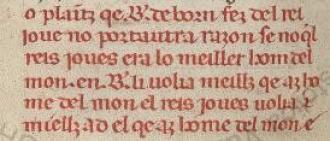 o plainz qe.B. de born fez del rei
ioue no porta autra razon se no q̃l
reis ioues era lo meiller hom del
mon. en.B. li uolia meillz qe az ho
me del mon el reis ioues uolia
mieillz ad el qe az home del mon e